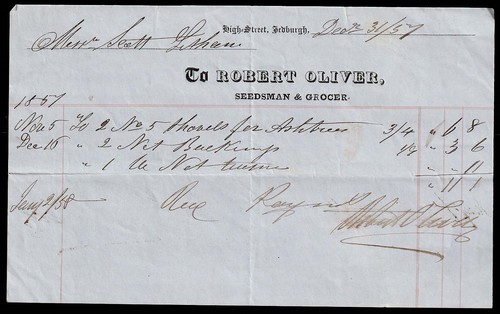 High-Street, Jedburgh, Decr 31/57
Messrs Scott
To ROBERT OLIVER,
SEEDSMAN & GROCER.
1857
Nov 5 To 2 No 5 Shovels for 3/4 " 6 8
Dec 16 " 2 Net " 3 6
" 1 Net " " 11
" 11 1
Jany 2/58 Rec Paymt
Robert Oliver